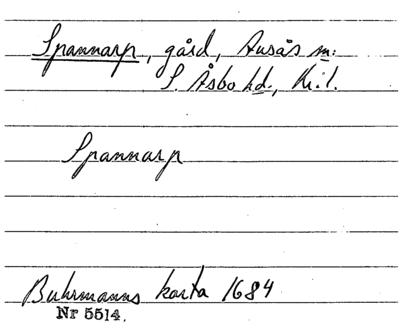 Spannarp, gård, Ausås sn:
S. Åsbo hd., Kr.l.
Spannarp
Buhrmanns karta 1684
Nr 5514.